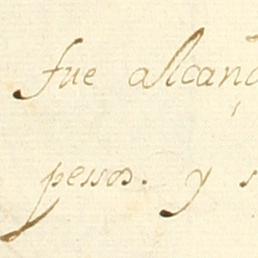 fue alcan
pessos. y